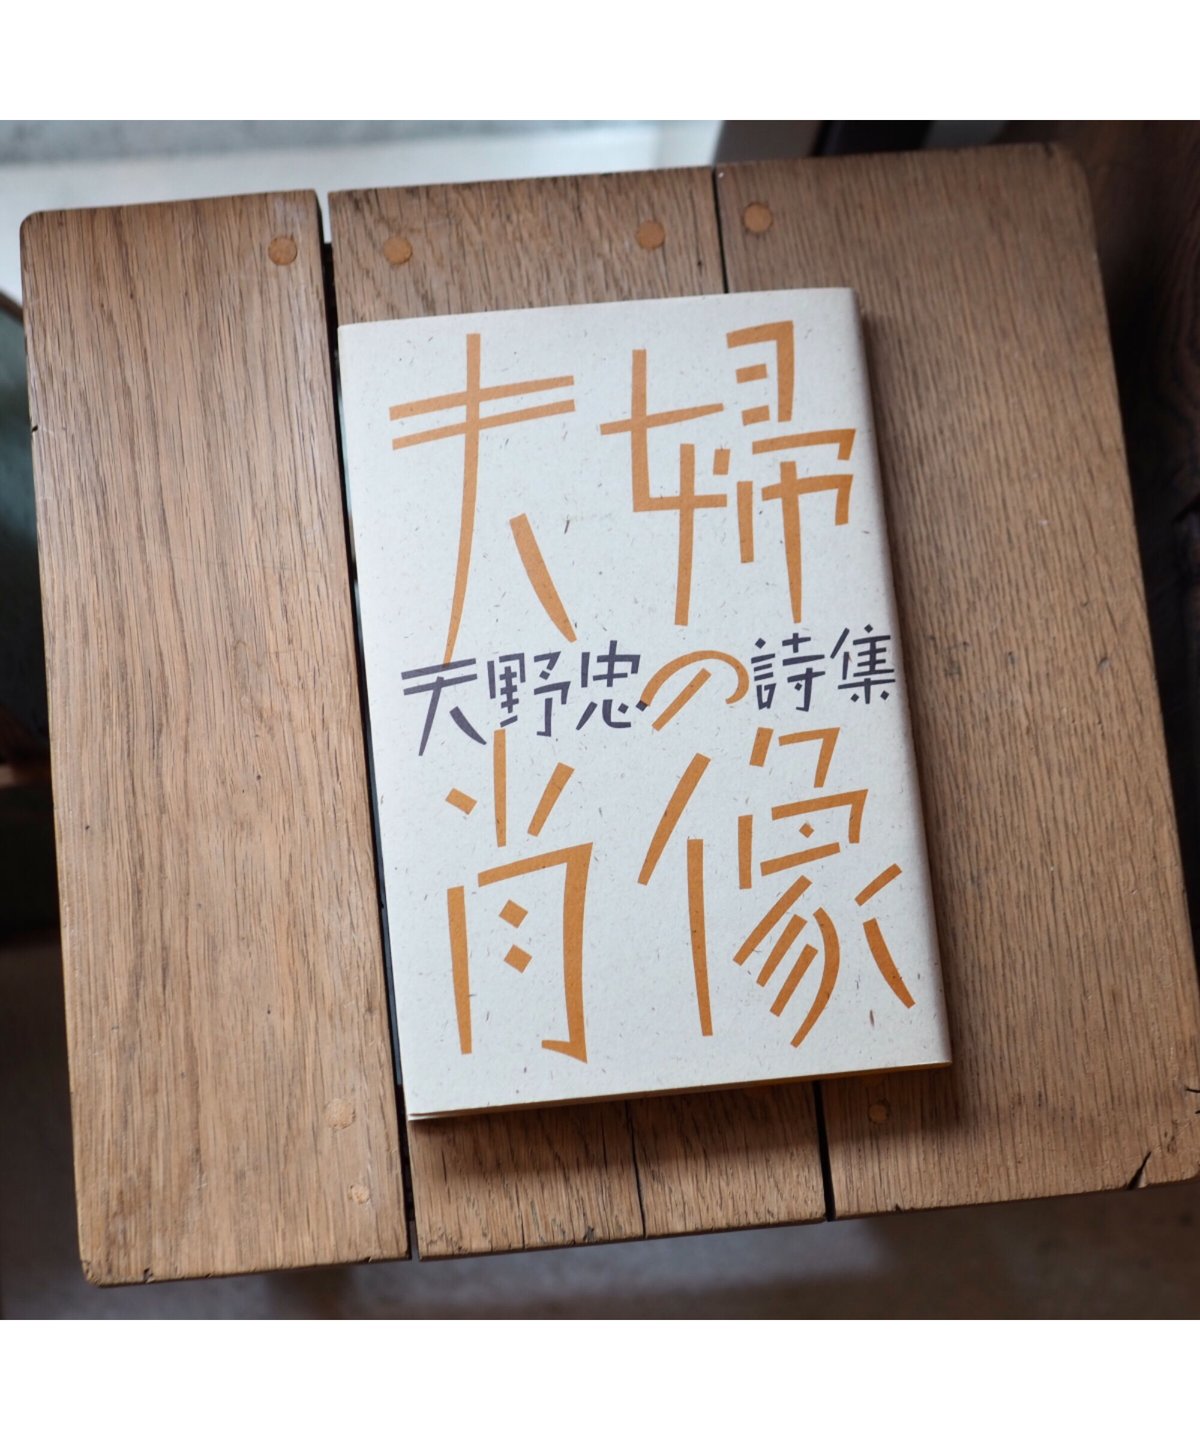 夫婦
の
肖像
天野忠 詩集